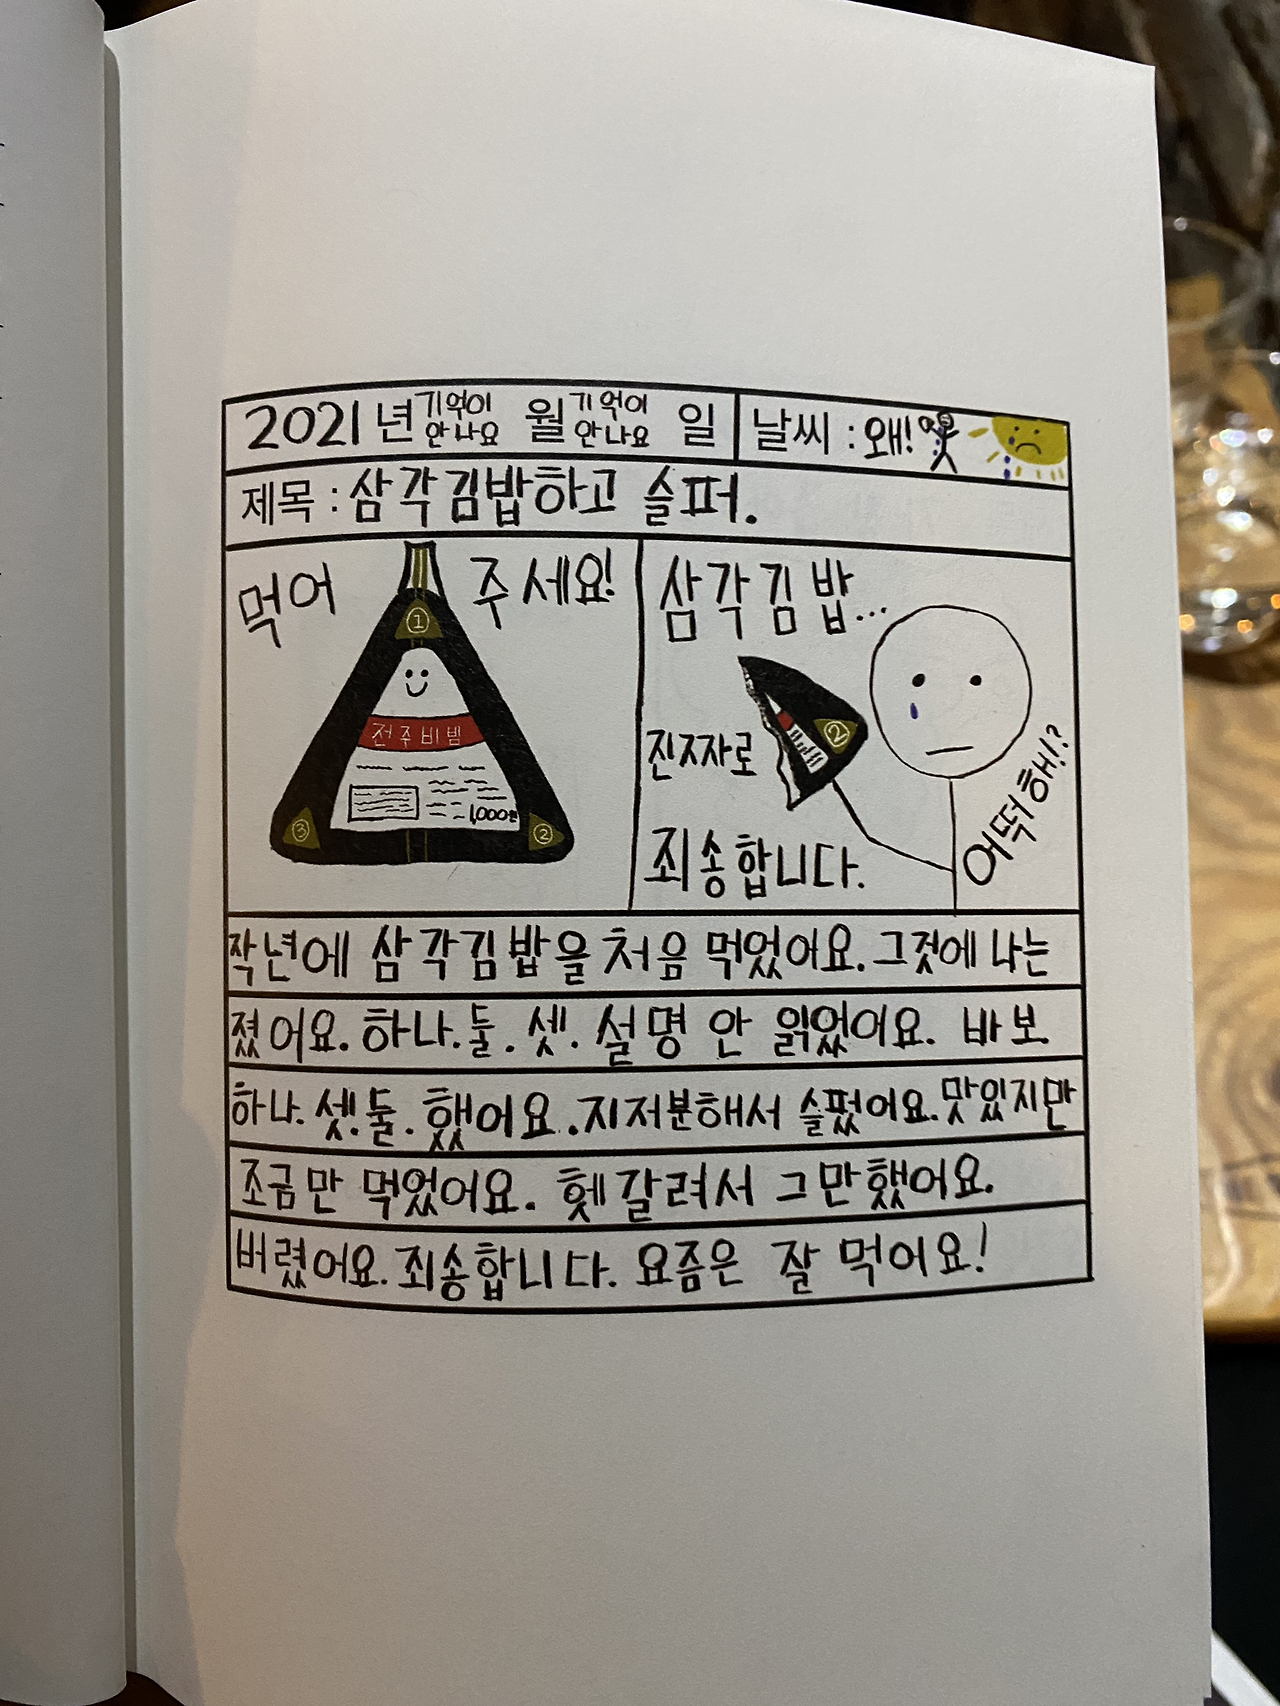 2021년 기억이 안나요 월 기억이 안나요 일 날씨 : 왜!
제목 : 삼각김밥하고 슬퍼.
먹어 주세요!
①
전주비빔
1,000원
③ ②
삼각김밥...
②
진자자로
죄송합니다.
어떡해!?
작년에 삼각김밥을 처음 먹었어요. 그것에 나는
졌어요. 하나. 둘. 셋. 설명 안 읽었어요. 바보
하나. 셋. 둘. 했어요. 지저분해서 슬펐어요. 맛있지만
조금만 먹었어요. 헷갈려서 그만했어요.
버렸어요. 죄송합니다. 요즘은 잘 먹어요!